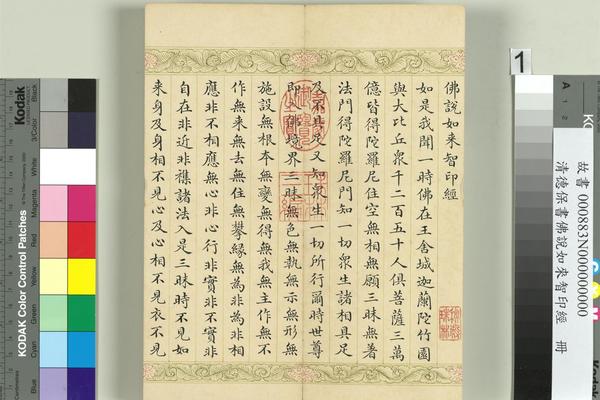 佛說如來智印經
如是我聞一時佛在王舍城迦蘭陀竹園
與大比丘衆千二百五十人俱菩薩三萬
億皆得陀羅尼住空無相無願三昧無著
法門得陀羅尼門知一切衆生諸相具足
及不具足又知衆生一切所行爾時世尊
即入佛境界三昧無色無執無示無形無
施設無根本無變無得無我無主作無不
作無來無去無住無攀緣無為非為非相
應非不相應無心非心行非實非不實非
自在非近非襍諸法入是三昧時不見如
來身及身相不見心及心相不見衣不見
1
故書 000883N000000000
清德保書佛說如來智印經 冊
Kodak
KODAK Color Control Patches
Blue
Cyan
Green
Yellow
Red
Magenta
White
3/Color
Black
A
1
2